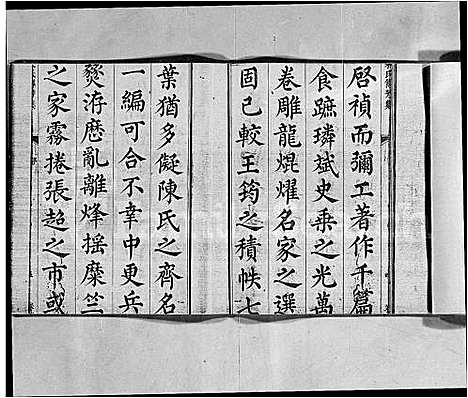 啓禎而彌工著作千篇
食蹠璘斌史乗之光萬
卷雕龍焜燿名家之選
固已較王筠之積帙七
葉猶多儗陳氏之齊名
一編可合不幸中更兵
燹洊歷亂離烽揺糜竺
之家霧捲張超之市或